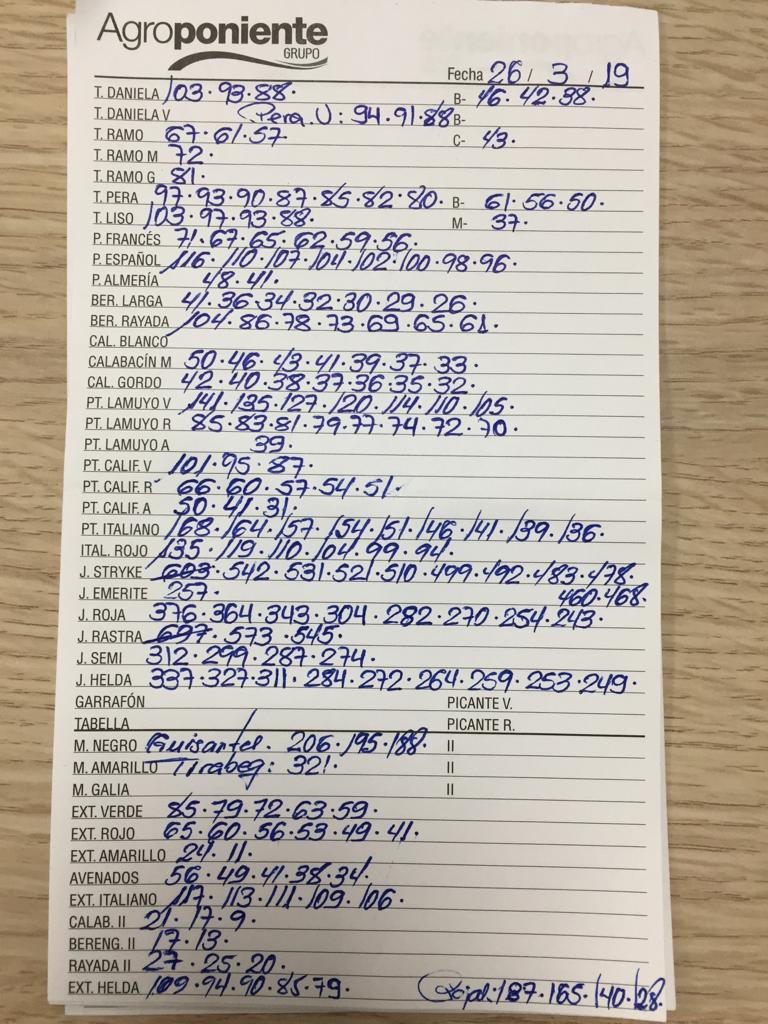 Agroponiente
GRUPO
Fecha 26 / 3 / 19
T. DANIELA 103·93·88· B- 46·42·38·
T. DANIELA V Pera V: 94·91·88 B-
T. RAMO 67·61·57 C- 43·
T. RAMO M 72·
T. RAMO G 81·
T. PERA 97·93·90·87·85·82·80· B- 61·56·50·
T. LISO 103·97·93·88· M- 37·
P. FRANCÉS 71·67·65·62·59·56·
P. ESPAÑOL 116·110·107·104·102·100·98·96·
P. ALMERÍA 48·41·
BER. LARGA 41·36·34·32·30·29·26·
BER. RAYADA 104·86·78·73·69·65·61·
CAL. BLANCO
CALABACÍN M 50·46·43·41·39·37·33·
CAL. GORDO 42·40·38·37·36·35·32·
PT. LAMUYO V 141·135·127·120·114·110·105·
PT. LAMUYO R 85·83·81·79·77·74·72·70·
PT. LAMUYO A 39·
PT. CALIF. V 101·95·87·
PT. CALIF. R 66·60·57·54·51·
PT. CALIF. A 50·41·31·
PT. ITALIANO 168·164·157·154·151·146·141·139·136·
ITAL. ROJO 135·119·110·104·99·94·
J. STRYKE 603·542·531·521·510·499·492·483·478·
J. EMERITE 257· 460·468·
J. ROJA 376·364·343·304·282·270·254·243·
J. RASTRA 697·573·545·
J. SEMI 312·299·287·274·
J. HELDA 337·327·311·284·272·264·259·253·249·
GARRAFÓN PICANTE V.
TABELLA PICANTE R.
M. NEGRO Guisantel. 206·195·188· II
M. AMARILLO Tirabeq: 321· II
M. GALIA II
EXT. VERDE 85·79·72·63·59·
EXT. ROJO 65·60·56·53·49·41·
EXT. AMARILLO 24·11·
AVENADOS 56·49·41·38·34·
EXT. ITALIANO 117·113·111·109·106·
CALAB. II 21·17·9·
BERENG. II 17·13·
RAYADA II 27·25·20·
EXT. HELDA 109·94·90·85·79· 187·165·140·128·